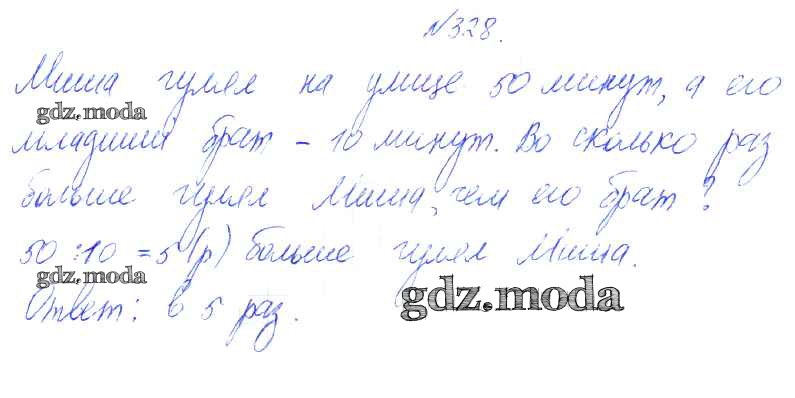 №328.
Миша гулял на улице 50 минут, а его
gdz.moda
младший брат – 10 минут. Во сколько раз
больше гулял Миша, чем его брат?
50:10=5(р) больше гулял Миша.
gdz.moda
gdz.moda
Ответ: в 5 раз.